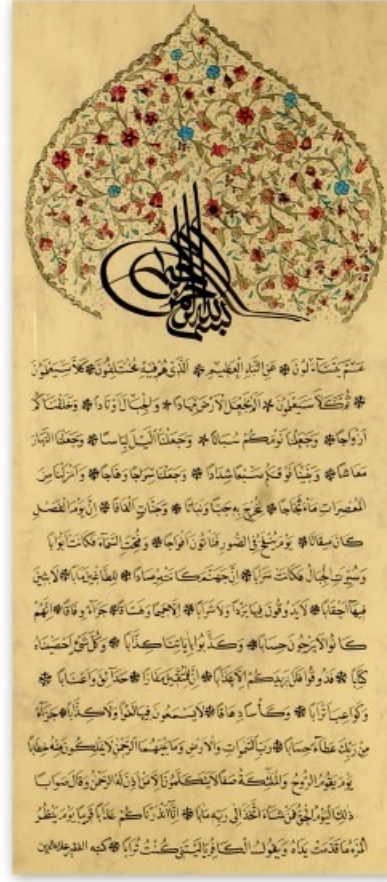 بسم الله الرحمن الرحيم
عَمَّ يَتَسَاءَلُونَ ❁ عَنِ النَّبَإِ الْعَظِيمِ ❁ الَّذِي هُمْ فِيهِ مُخْتَلِفُونَ ❁ كَلَّا سَيَعْلَمُونَ
❁ ثُمَّ كَلَّا سَيَعْلَمُونَ ❁ أَلَمْ نَجْعَلِ الْأَرْضَ مِهَادًا ❁ وَالْجِبَالَ أَوْتَادًا ❁ وَخَلَقْنَاكُمْ
أَزْوَاجًا ❁ وَجَعَلْنَا نَوْمَكُمْ سُبَاتًا ❁ وَجَعَلْنَا اللَّيْلَ لِبَاسًا ❁ وَجَعَلْنَا النَّهَارَ
مَعَاشًا ❁ وَبَنَيْنَا فَوْقَكُمْ سَبْعًا شِدَادًا ❁ وَجَعَلْنَا سِرَاجًا وَهَّاجًا ❁ وَأَنْزَلْنَا مِنَ
الْمُعْصِرَاتِ مَاءً ثَجَّاجًا ❁ لِنُخْرِجَ بِهِ حَبًّا وَنَبَاتًا ❁ وَجَنَّاتٍ أَلْفَافًا ❁ إِنَّ يَوْمَ الْفَصْلِ
كَانَ مِيقَاتًا ❁ يَوْمَ يُنْفَخُ فِي الصُّورِ فَتَأْتُونَ أَفْوَاجًا ❁ وَفُتِحَتِ السَّمَاءُ فَكَانَتْ أَبْوَابًا
وَسُيِّرَتِ الْجِبَالُ فَكَانَتْ سَرَابًا ❁ إِنَّ جَهَنَّمَ كَانَتْ مِرْصَادًا ❁ لِلطَّاغِينَ مَآبًا ❁ لَابِثِينَ
فِيهَا أَحْقَابًا ❁ لَا يَذُوقُونَ فِيهَا بَرْدًا وَلَا شَرَابًا ❁ إِلَّا حَمِيمًا وَغَسَّاقًا ❁ جَزَاءً وِفَاقًا ❁ إِنَّهُمْ
كَانُوا لَا يَرْجُونَ حِسَابًا ❁ وَكَذَّبُوا بِآيَاتِنَا كِذَّابًا ❁ وَكُلَّ شَيْءٍ أَحْصَيْنَاهُ
كِتَابًا ❁ فَذُوقُوا فَلَنْ نَزِيدَكُمْ إِلَّا عَذَابًا ❁ إِنَّ لِلْمُتَّقِينَ مَفَازًا ❁ حَدَائِقَ وَأَعْنَابًا ❁
وَكَوَاعِبَ أَتْرَابًا ❁ وَكَأْسًا دِهَاقًا ❁ لَا يَسْمَعُونَ فِيهَا لَغْوًا وَلَا كِذَّابًا ❁ جَزَاءً
مِنْ رَبِّكَ عَطَاءً حِسَابًا ❁ رَبِّ السَّمَوَاتِ وَالْأَرْضِ وَمَا بَيْنَهُمَا الرَّحْمَنِ لَا يَمْلِكُونَ مِنْهُ خِطَابًا
يَوْمَ يَقُومُ الرُّوحُ وَالْمَلَائِكَةُ صَفًّا لَا يَتَكَلَّمُونَ إِلَّا مَنْ أَذِنَ لَهُ الرَّحْمَنُ وَقَالَ صَوَابًا
ذَلِكَ الْيَوْمُ الْحَقُّ فَمَنْ شَاءَ اتَّخَذَ إِلَى رَبِّهِ مَآبًا ❁ إِنَّا أَنْذَرْنَاكُمْ عَذَابًا قَرِيبًا يَوْمَ يَنْظُرُ
الْمَرْءُ مَا قَدَّمَتْ يَدَاهُ وَيَقُولُ الْكَافِرُ يَا لَيْتَنِي كُنْتُ تُرَابًا ❁ كتبه الفقير علاء الدين